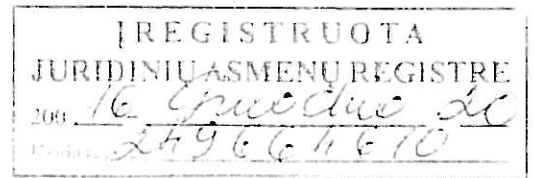 ĮREGISTRUOTA
JURIDINIŲ ASMENŲ REGISTRE
200 16 gruodžio 20
Kodas 249664610